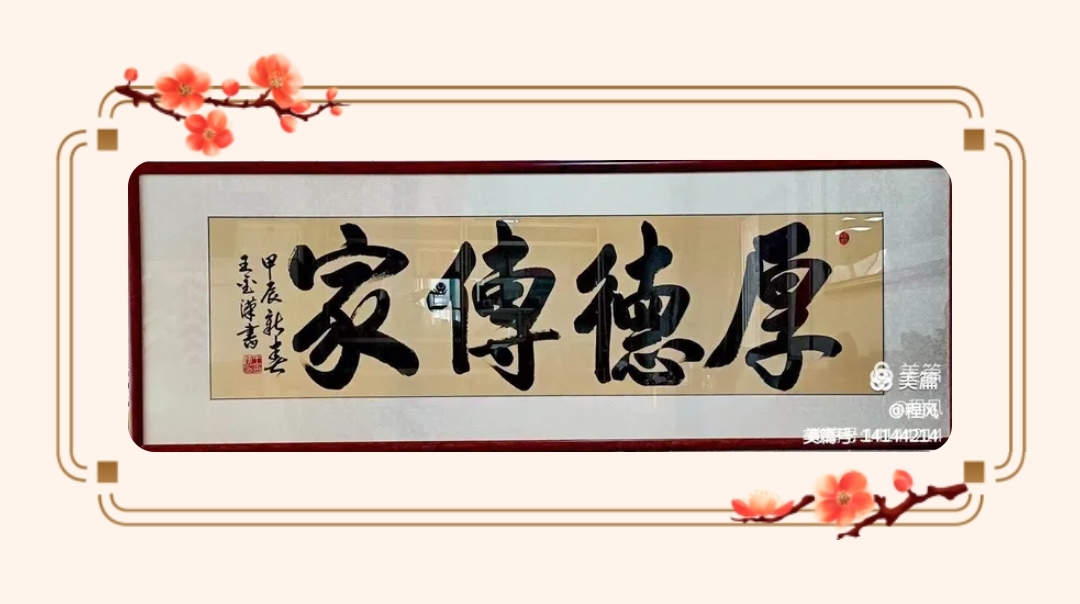 厚德傳家
甲辰新春
王金漢書
美篇
@程风
美篇号: 14144214